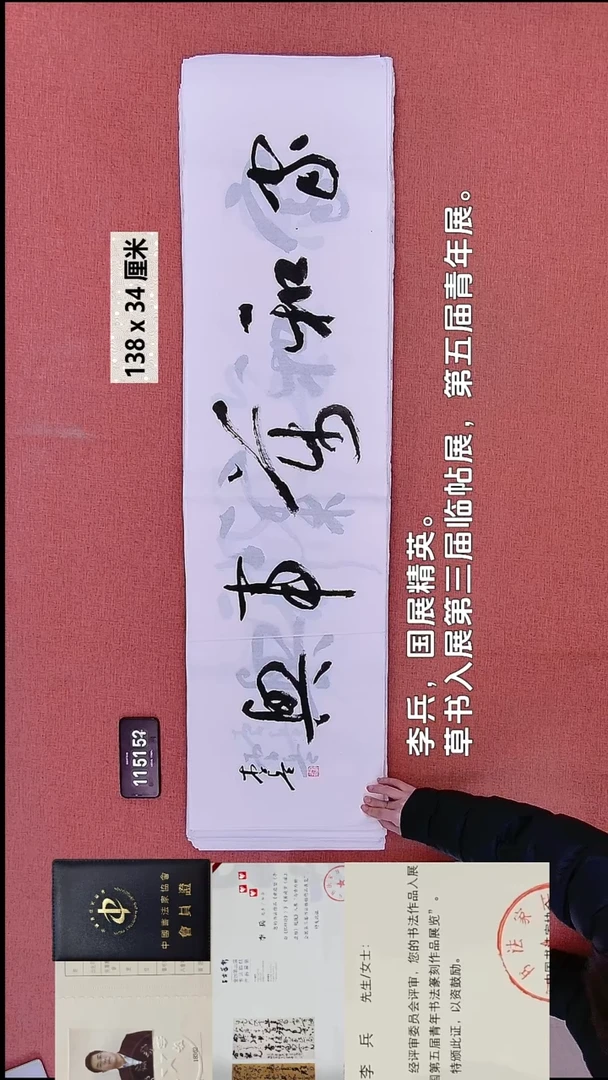 138 x 34 厘米
家和萬事興
李兵
李兵，国展精英。
草书入展第三届临帖展，第五届青年展。
中國書法家協會
會員證
李 兵 先生/女士：
经评审委员会评审，您的书法作品入展
国第五届青年书法篆刻作品展览”。
特颁此证，以资鼓励。